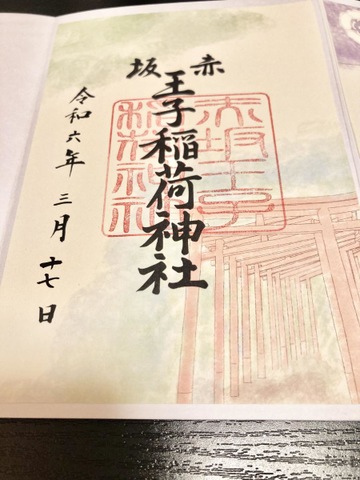 赤坂
王子稲荷神社
令和六年三月十七日
赤坂王子
稲荷神社